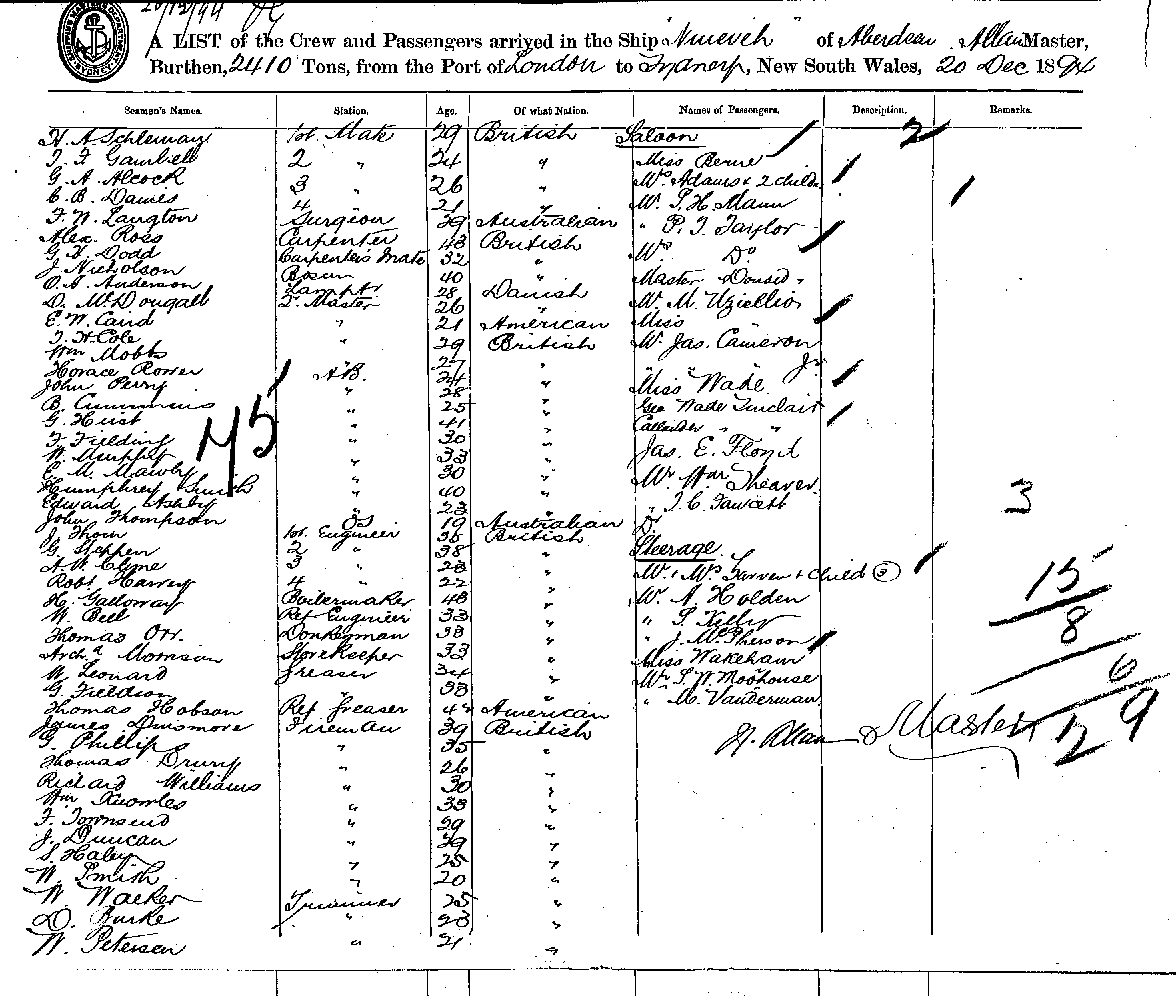 20/12/94
A LIST of the Crew and Passengers arrived in the Ship "Nineveh" of Aberdeen Allan Master,
Burthen, 2410 Tons, from the Port of London to Sydney, New South Wales, 20 Dec 1894
Seamen's Names. Station. Age. Of what Nation. Names of Passengers. Description. Remarks.
H. A. Schleman 1st. Mate 29 British Saloon 2
T. F. Gambell 2 " 24 " Miss Berne
G. A. Alcock 3 " 26 " Mrs Adams + 2 childn
C. B. Davies 4 " 21 " Mr. S. H. Mann
F. W. Langton Surgeon 39 Australian " P. T. Taylor
Alex. Ross Carpenter 43 British Mrs Do
G. H. Dodd Carpenters Mate 32 "
J. Nicholson Bosun 40 " Master Donad "
O. A. Anderson Lampts 28 Danish
D. McDougall Q. Master 26 " Mr. M. Uziellio
E. W. Caird " 21 American Miss
T. H. Cole " 29 British Mr. Jas. Cameron
Wm Mobbs " Jr
Horace Rower A.B. 27 "
John Perry " 24 " "Miss" Wade
B. Cummins " 28 "
G. Hust " 25 " Geo Wade Sinclair
F. Fielding " 41 " Callender " "
W. Murphy " 30 " Jas. E. Floyd
E. M. Mawby " 33 "
Humphrey Smith " 30 " Mr. Wm Sheaver
Edward Ashby " 40 " " T. C. Fawcett
John Thompson OS 19 Australian Do
45
3
J. Thom 1st. Engineer 36 British
G. Steppen 2 " 38 " Steerage
A. W. Clyne 3 " 28 " Mr. + Mrs. Farren + Child ③
Robt Harvey 4 " 22 " Mr. A Holden
H. Galloway Boilermaker 48 " " S. Kelly
W. Bell Ref Engineer 33 "
Thomas Orr. Donkeyman 38 " " J. McPherson
Archd Morrison Storekeeper 33 " Miss Wakeham
W. Leonard Greaser 34 " Mr S. W. Moohouse
G. Fieldson " 38 " " M. Vanderman
Thomas Hobson Ref Greaser 42 American
James Dinsmore Fireman 39 British
15
8
6
29
H. Allan Master
G. Phillips " 35 "
Thomas Drury " 26 "
Richard Williams " 30 "
Wm Knowles " 38 "
F. Townsend " 29 "
J. Duncan " 39 "
S. Haley " 25 "
W. Smith " 20 "
W. Walker Trimmer 25 "
D. Burke " 23 "
W. Petersen " 21 "